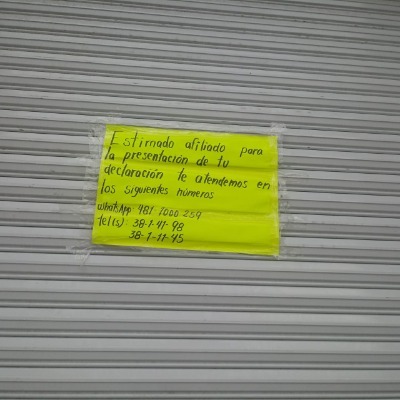 Estimado afiliado para
la presentación de tu
declaración te atendemos en
los siguientes números
whatsApp: 481 1000 259
tel(s): 38-1-41-98
38-1-11-45